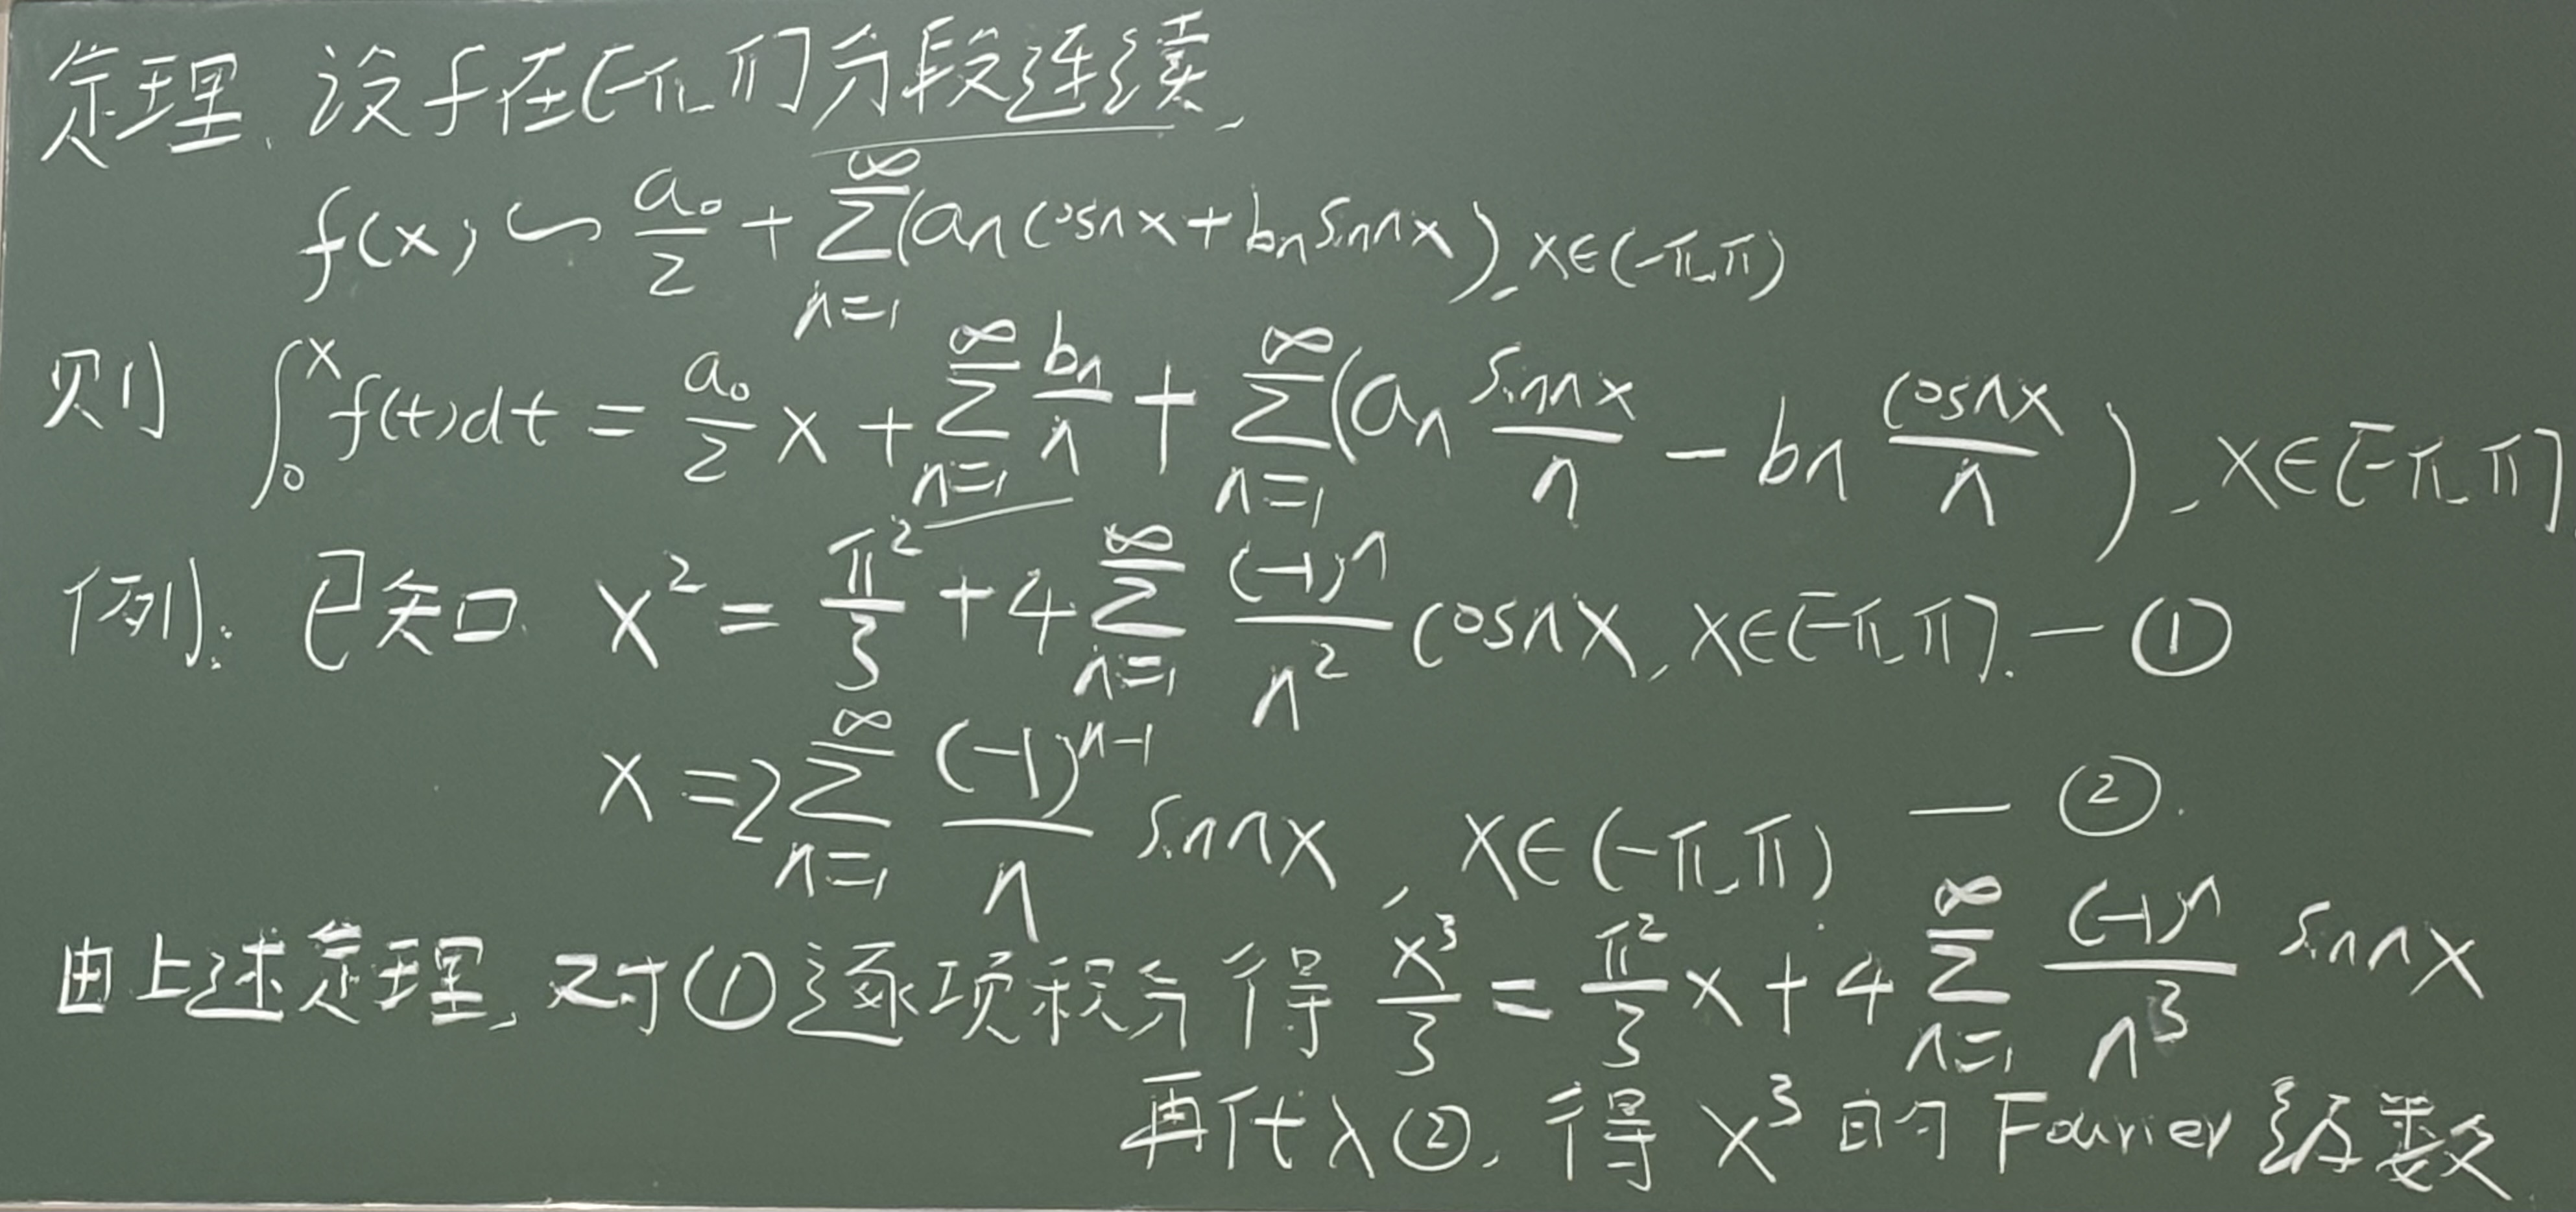 定理. 设f在[-π,π]分段连续,
f(x) ∽ a₀/2 + ∑_{n=1}^{∞}(aₙcosnx+bₙsinnx), x∈(-π,π)
则 ∫₀ˣ f(t)dt = a₀/2 x + ∑_{n=1}^{∞} bₙ/n + ∑_{n=1}^{∞}(aₙ sinnx/n - bₙ cosnx/n), x∈[-π,π]
例: 已知 x² = π²/3 + 4∑_{n=1}^{∞} (-1)ⁿ/n² cosnx, x∈[-π,π]. — ①
x = 2∑_{n=1}^{∞} (-1)ⁿ⁻¹/n sinnx, x∈(-π,π) — ②.
由上述定理, 对①逐项积分得 x³/3 = π²/3 x + 4∑_{n=1}^{∞} (-1)ⁿ/n³ sinnx
再代入②, 得 x³ 的 Fourier 级数.